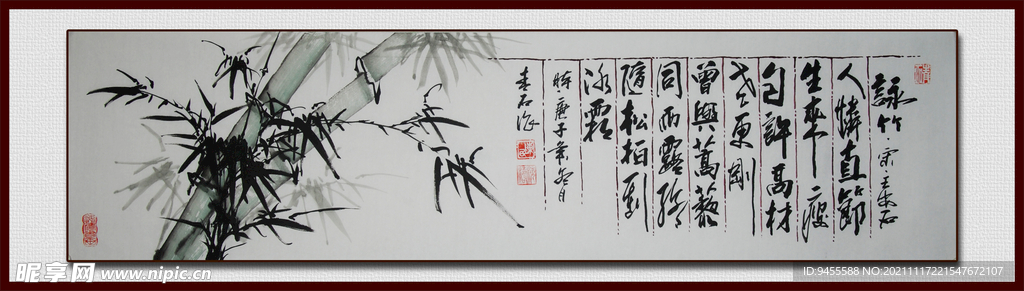 詠竹 宋 王安石
人憐直節
生來瘦
自許高材
老更剛
曾與蒿藜
同雨露終
隨松柏到
冰霜
時庚子年冬月
昵享网 www.nipic.cn
ID:9455588 NO:20211117221547672107